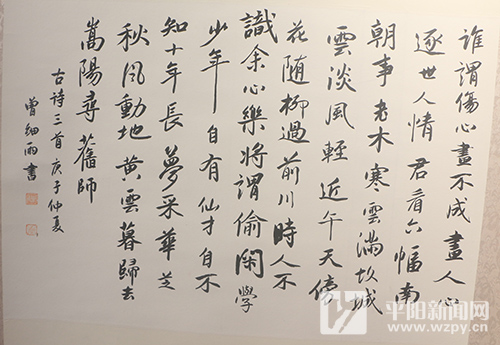 誰謂傷心畫不成畫人心
逐世人情君看六幅南
朝事老木寒雲滿故城
雲淡風輕近午天傍
花隨柳過前川時人不
識余心樂將謂偷閑學
少年自有仙才自不
知十年長夢采華芝
秋風動地黃雲暮歸去
嵩陽尋舊師
古诗三首庚子仲夏
曾細雨書
平阳新闻网
www.wzpy.cn